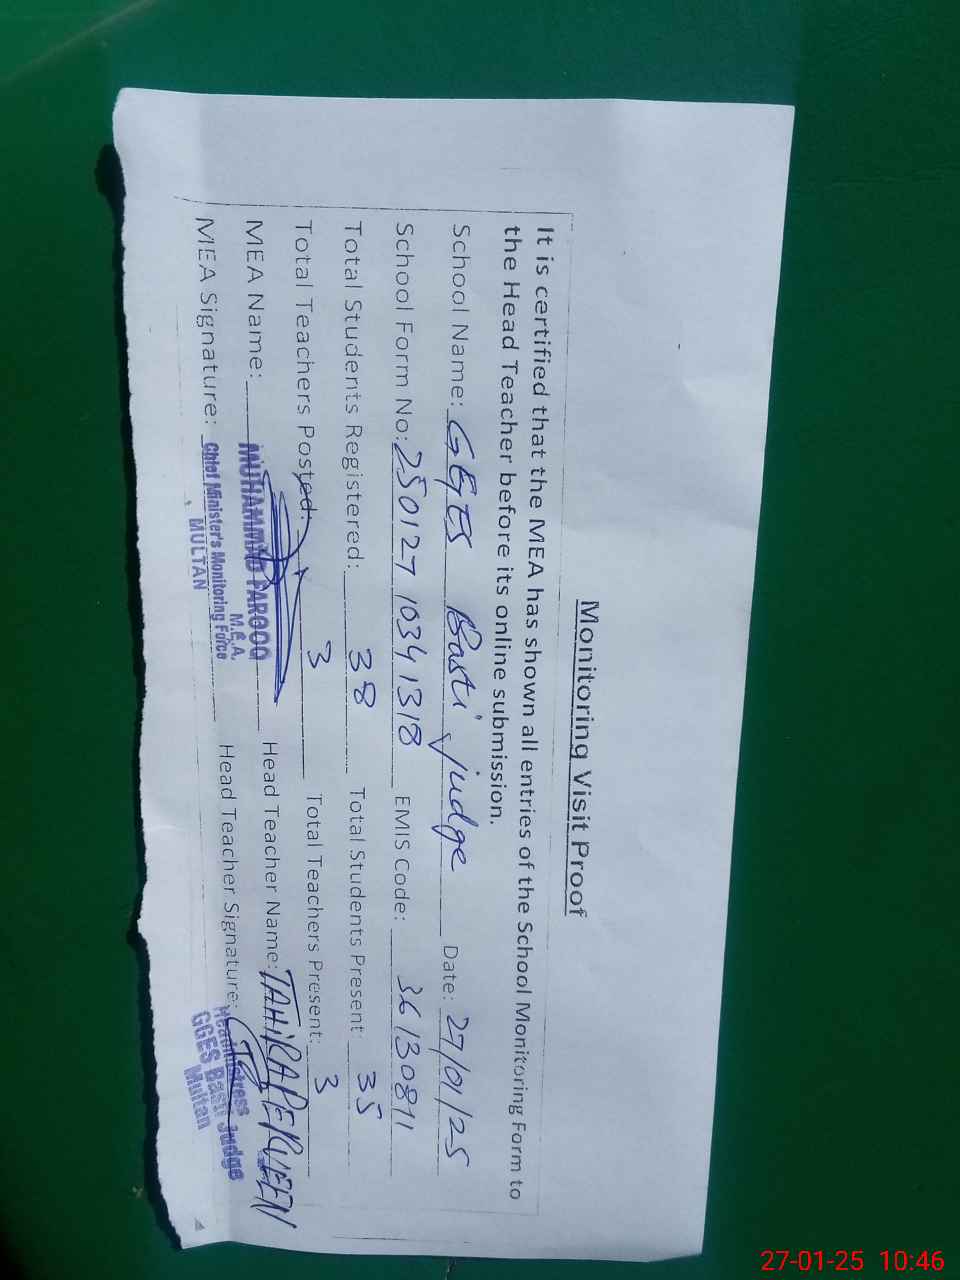 Monitoring Visit Proof
It is certified that the MEA has shown all entries of the School Monitoring Form to
the Head Teacher before its online submission.
School Name: GGES Basti judge Date: 27/01/25
School Form No: 250127 10341318 EMIS Code: 36130811
Total Students Registered: 38 Total Students Present: 35
Total Teachers Posted: 3 Total Teachers Present: 3
MEA Name: MUHAMMAD FAROOQ Head Teacher Name: TAHIRA PERVEEN
M.E.A.
MEA Signature: Chief Minister's Monitoring Force Head Teacher Signature: Headmistress
MULTAN GGES Basti Judge
Multan
27-01-25 10:46